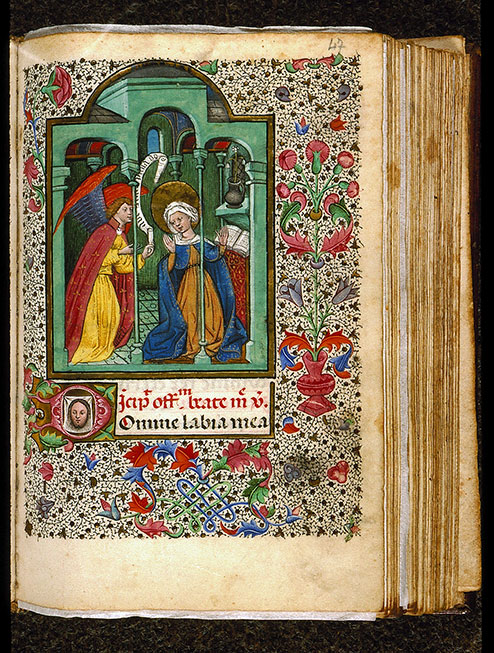 47
Jcip̃ off̃m beate m̃ v̾.
Omine labia mea